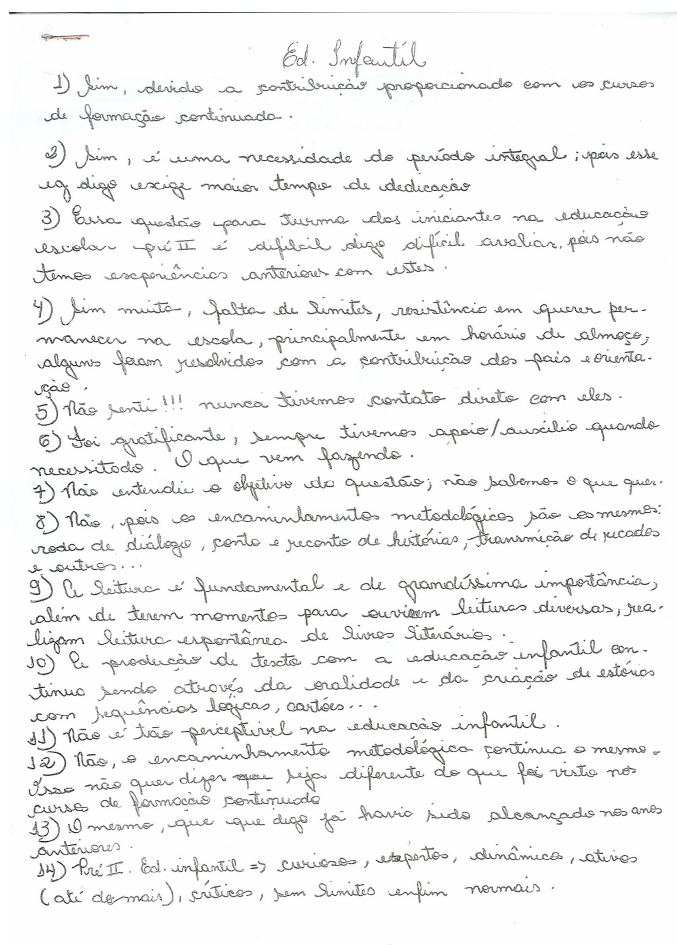 Ed. Infantil
1) Sim, devido a contribuição proporcionado com os cursos
de formação continuada.
2) Sim, é uma necessidade do período integral; pois esse
eq digo exige maior tempo de dedicação
3) Essa questão para turma dos iniciantes na educação
escolar pré II é difilcil digo difícil avaliar, pois não
temos experiências anteriores com estes.
4) Sim muita, falta de limites, resistência em querer per-
manecer na escola, principalmente em horário de almoço,
alguns foram resolvidos com a contribuição dos pais e orienta-
ção.
5) Não senti!!! nunca tivemos contato direto com eles.
6) Foi gratificante, sempre tivemos apoio/auxílio quando
necessitado. O que vem fazendo.
7) Não entendi o objetivo da questão; não sabemos o que quer.
8) Não, pois os encaminhamentos metodológicos são os mesmos:
roda de diálogo, conto e reconto de histórias, transmição de recados
e outros...
9) A leitura é fundamental e de grandíssima importância,
além de terem momentos para ouvirem leituras diversas, rea-
lizam leitura espontânea de livros literários.
10) A produção de texto com a educação infantil con-
tinua sendo através da oralidade e da criação de estórias
com sequências lógicas, cartões...
11) Não é tão perceptivel na educação infantil.
12) Não, o encaminhamento metodológica continua o mesmo.
Isso não quer dizer que seja diferente do que foi visto nos
curso de formação continuado
13) O mesmo, que que digo já havia sido alcançado nos anos
anteriores.
14) Pré II. Ed. infantil => curiosos, espertos, dinâmico, ativos
(até demais), críticos, sem limites enfim normais.